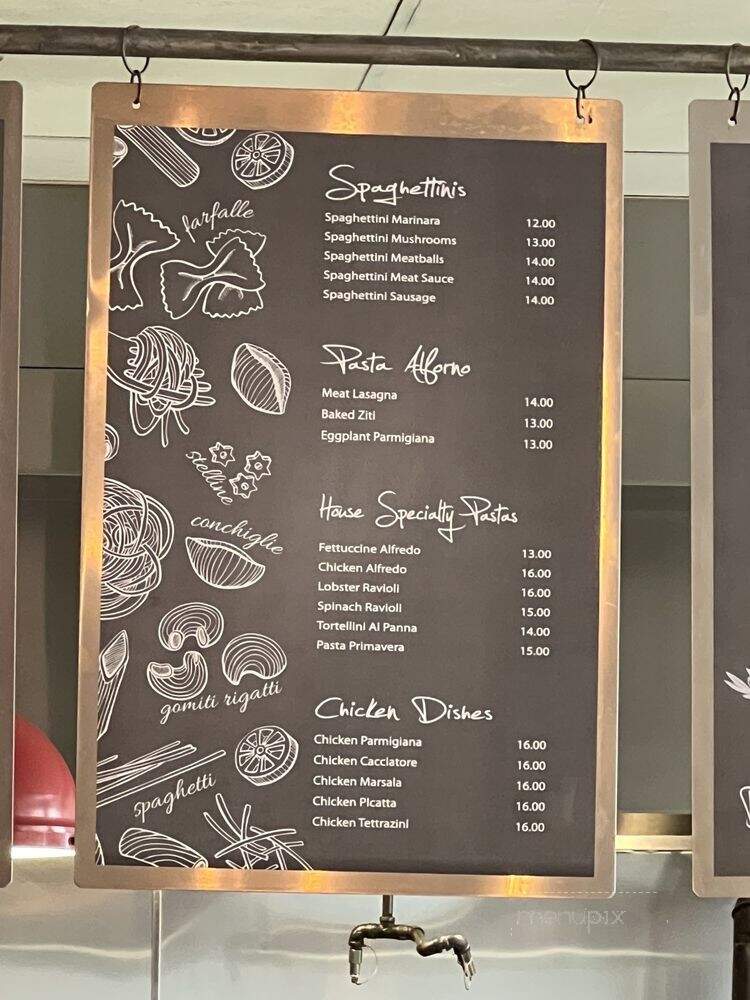 farfalle
stelline
conchiglie
gomiti rigatti
spaghetti
Spaghettinis
Spaghettini Marinara 12.00
Spaghettini Mushrooms 13.00
Spaghettini Meatballs 14.00
Spaghettini Meat Sauce 14.00
Spaghettini Sausage 14.00
Pasta Alforno
Meat Lasagna 14.00
Baked Ziti 13.00
Eggplant Parmigiana 13.00
House Specialty Pastas
Fettuccine Alfredo 13.00
Chicken Alfredo 16.00
Lobster Ravioli 16.00
Spinach Ravioli 15.00
Tortellini Al Panna 14.00
Pasta Primavera 15.00
Chicken Dishes
Chicken Parmigiana 16.00
Chicken Cacciatore 16.00
Chicken Marsala 16.00
Chicken Picatta 16.00
Chicken Tettrazini 16.00
menupix